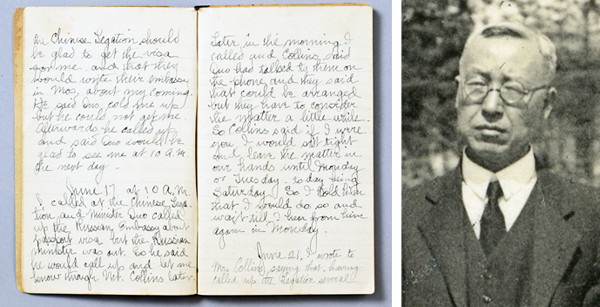 the Chinese Legation should
be glad to get the visa
for me and that they
would write their embassy
in Mos, about my coming.
He said Quo, cold me up
but he could not get me.
Afterwards he called up
and said Quo would be
glad to see me at 10 A.M.
the next day.
June 17 at 10 A.M.
I called at the Chinese Lega-
tion and Minister Quo called
up the Russian Embassy about
passport visa but the Russian
Minister was out. So he said
he would call up and let me
know through Mr. Collins later.
Later in the morning I
called and Collins said
Quo had talked to them on
the phone and they said
that could be arranged
but they have to consider
the matter a little while.
So Collins said if I were
you I would sit tight
and leave the matter in
our hands until Monday
or Tuesday. today being
Saturday. So I told him
that I would do so and
wait till I hear from him
again in Monday.
June 21. I wrote to
Mr. Collins, saying that, having
called up the Legation several